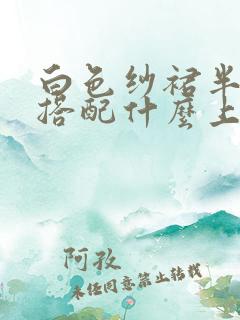 白色纱裙半
搭配什麼上
阿孜
未经同意禁止转载